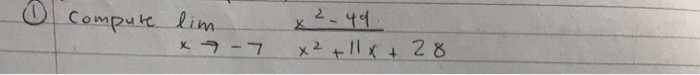 ① Compute lim x² - 49
x → -7 x² + 11x + 28